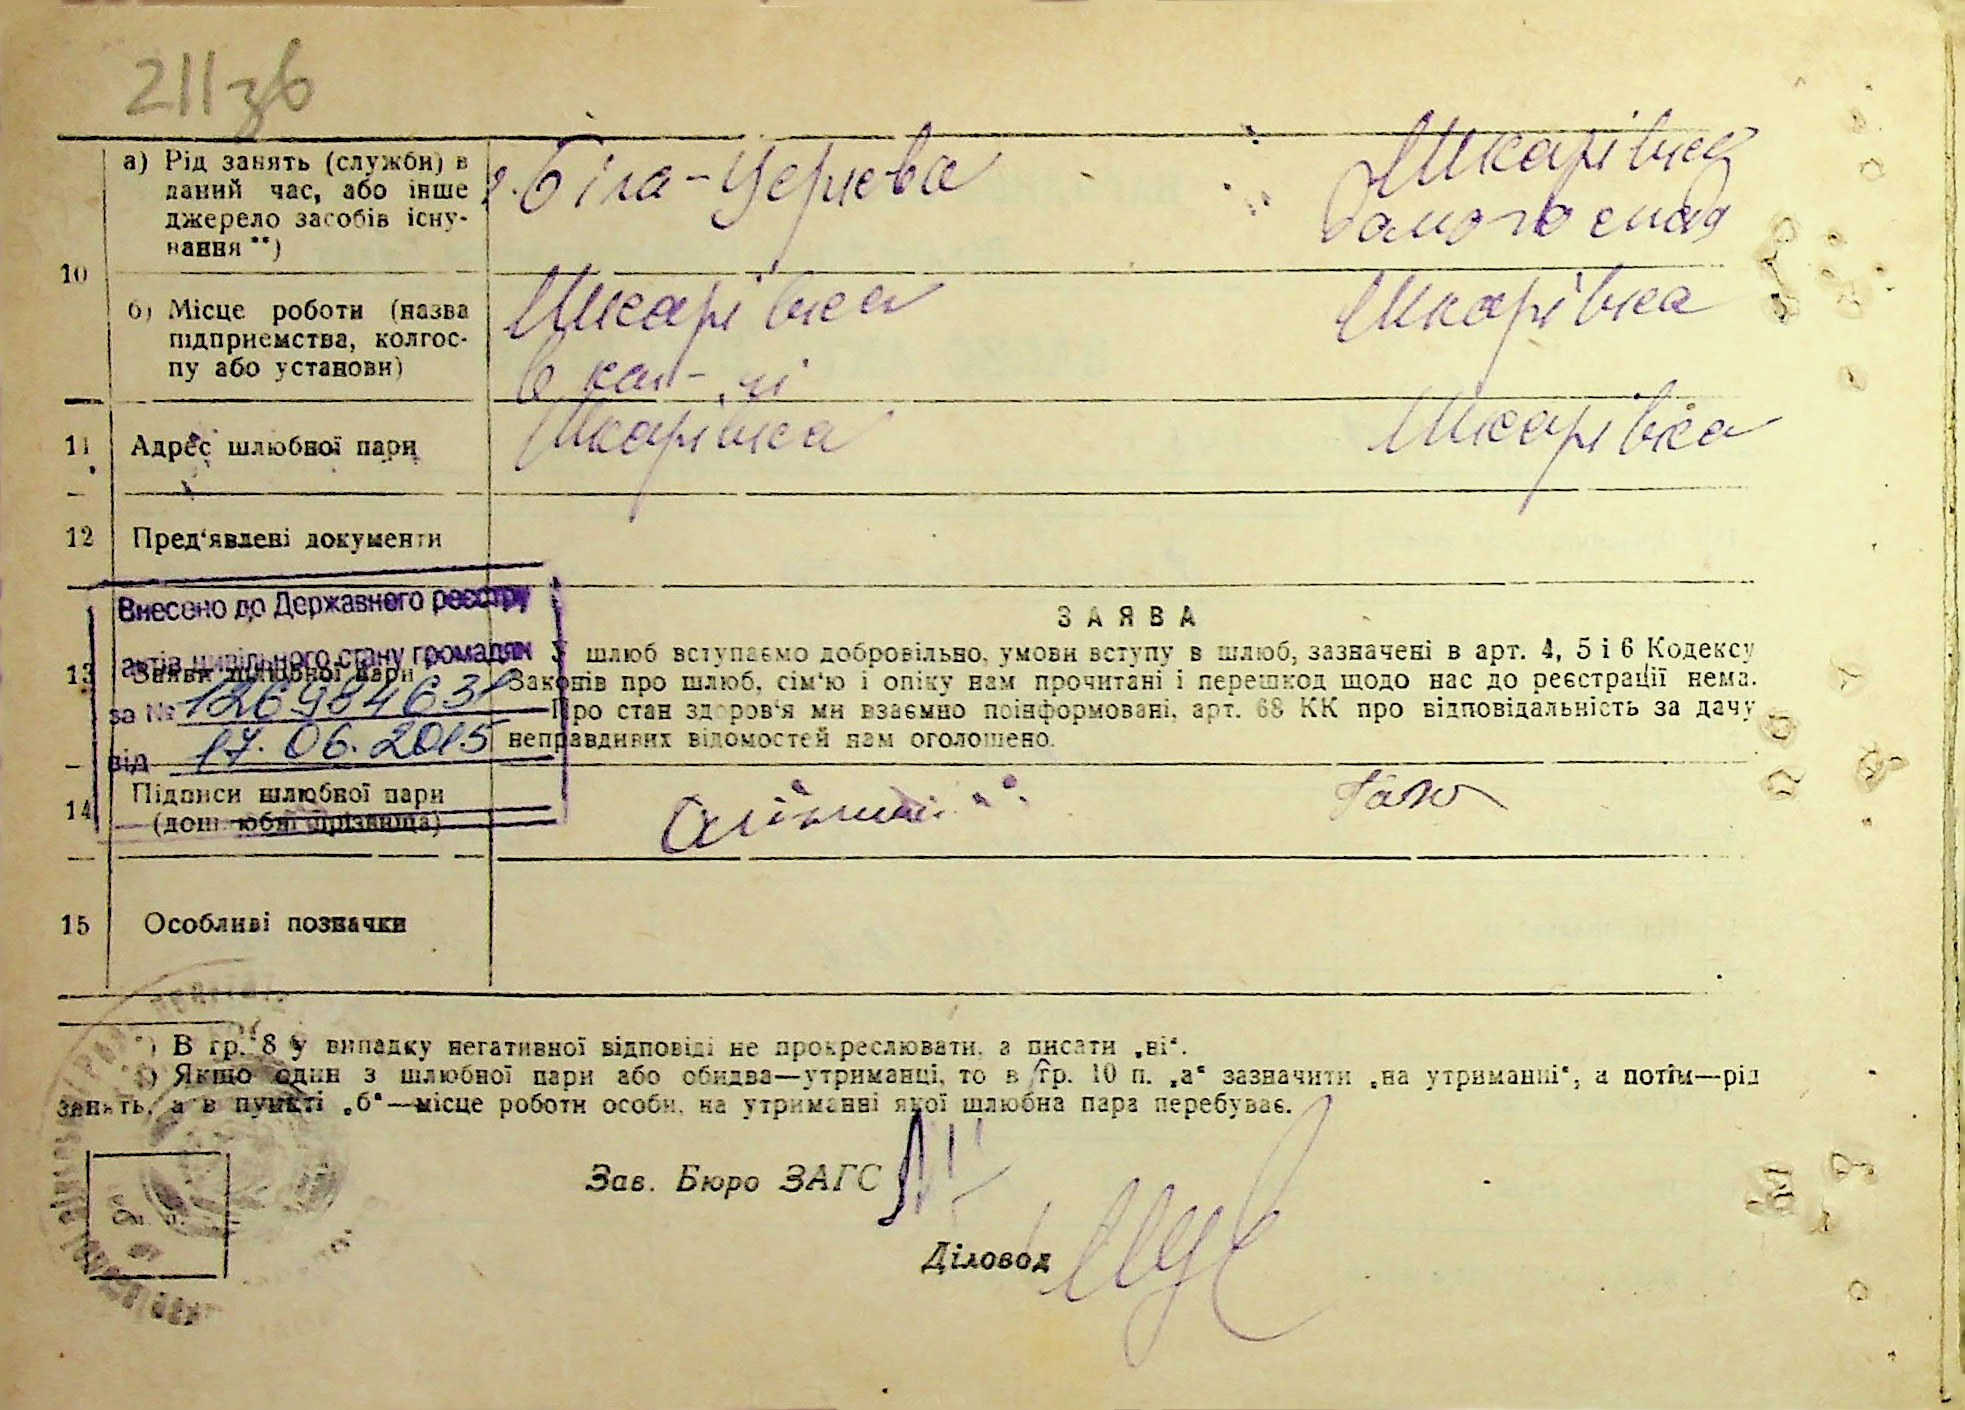 211зв
10
а) Рід занять (служби) в
даний час, або інше
джерело засобів існу-
вання **)
г. Біла-Церква
Шкарівка
домогоспод
б) Місце роботи (назва
підприємства, колгос-
пу або установи)
Шкарівка
Шкарівка
11
Адрес шлюбної пари
Шкарівка
Шкарівка
12
Пред'явлені документи
Внесено до Державного реєстру
актів цивільного стану громадян
за № 126984631
від 17.06.2015
13
Заяви шлюбної пари
ЗАЯВА
У шлюб вступаємо добровільно, умови вступу в шлюб, зазначені в арт. 4, 5 і 6 Кодексу
Законів про шлюб, сім'ю і опіку нам прочитані і перешкод щодо нас до реєстрації нема.
Про стан здоров'я ми взаємно поінформовані, арт. 68 КК про відповідальність за дачу
неправдивих відомостей нам оголошено.
14
Підписи шлюбної пари
(дошлюбні прізвища)
15
Особливі позначки
*) В гр. 8 у випадку негативної відповіді не прокреслювати, а писати „ні“.
**) Якщо один з шлюбної пари або обидва—утриманці, то в гр. 10 п. „а“ зазначити „на утриманні“, а потім—рід
занять, а в пункті „б“—місце роботи особи, на утриманні якої шлюбна пара перебуває.
Зав. Бюро ЗАГС
Діловод